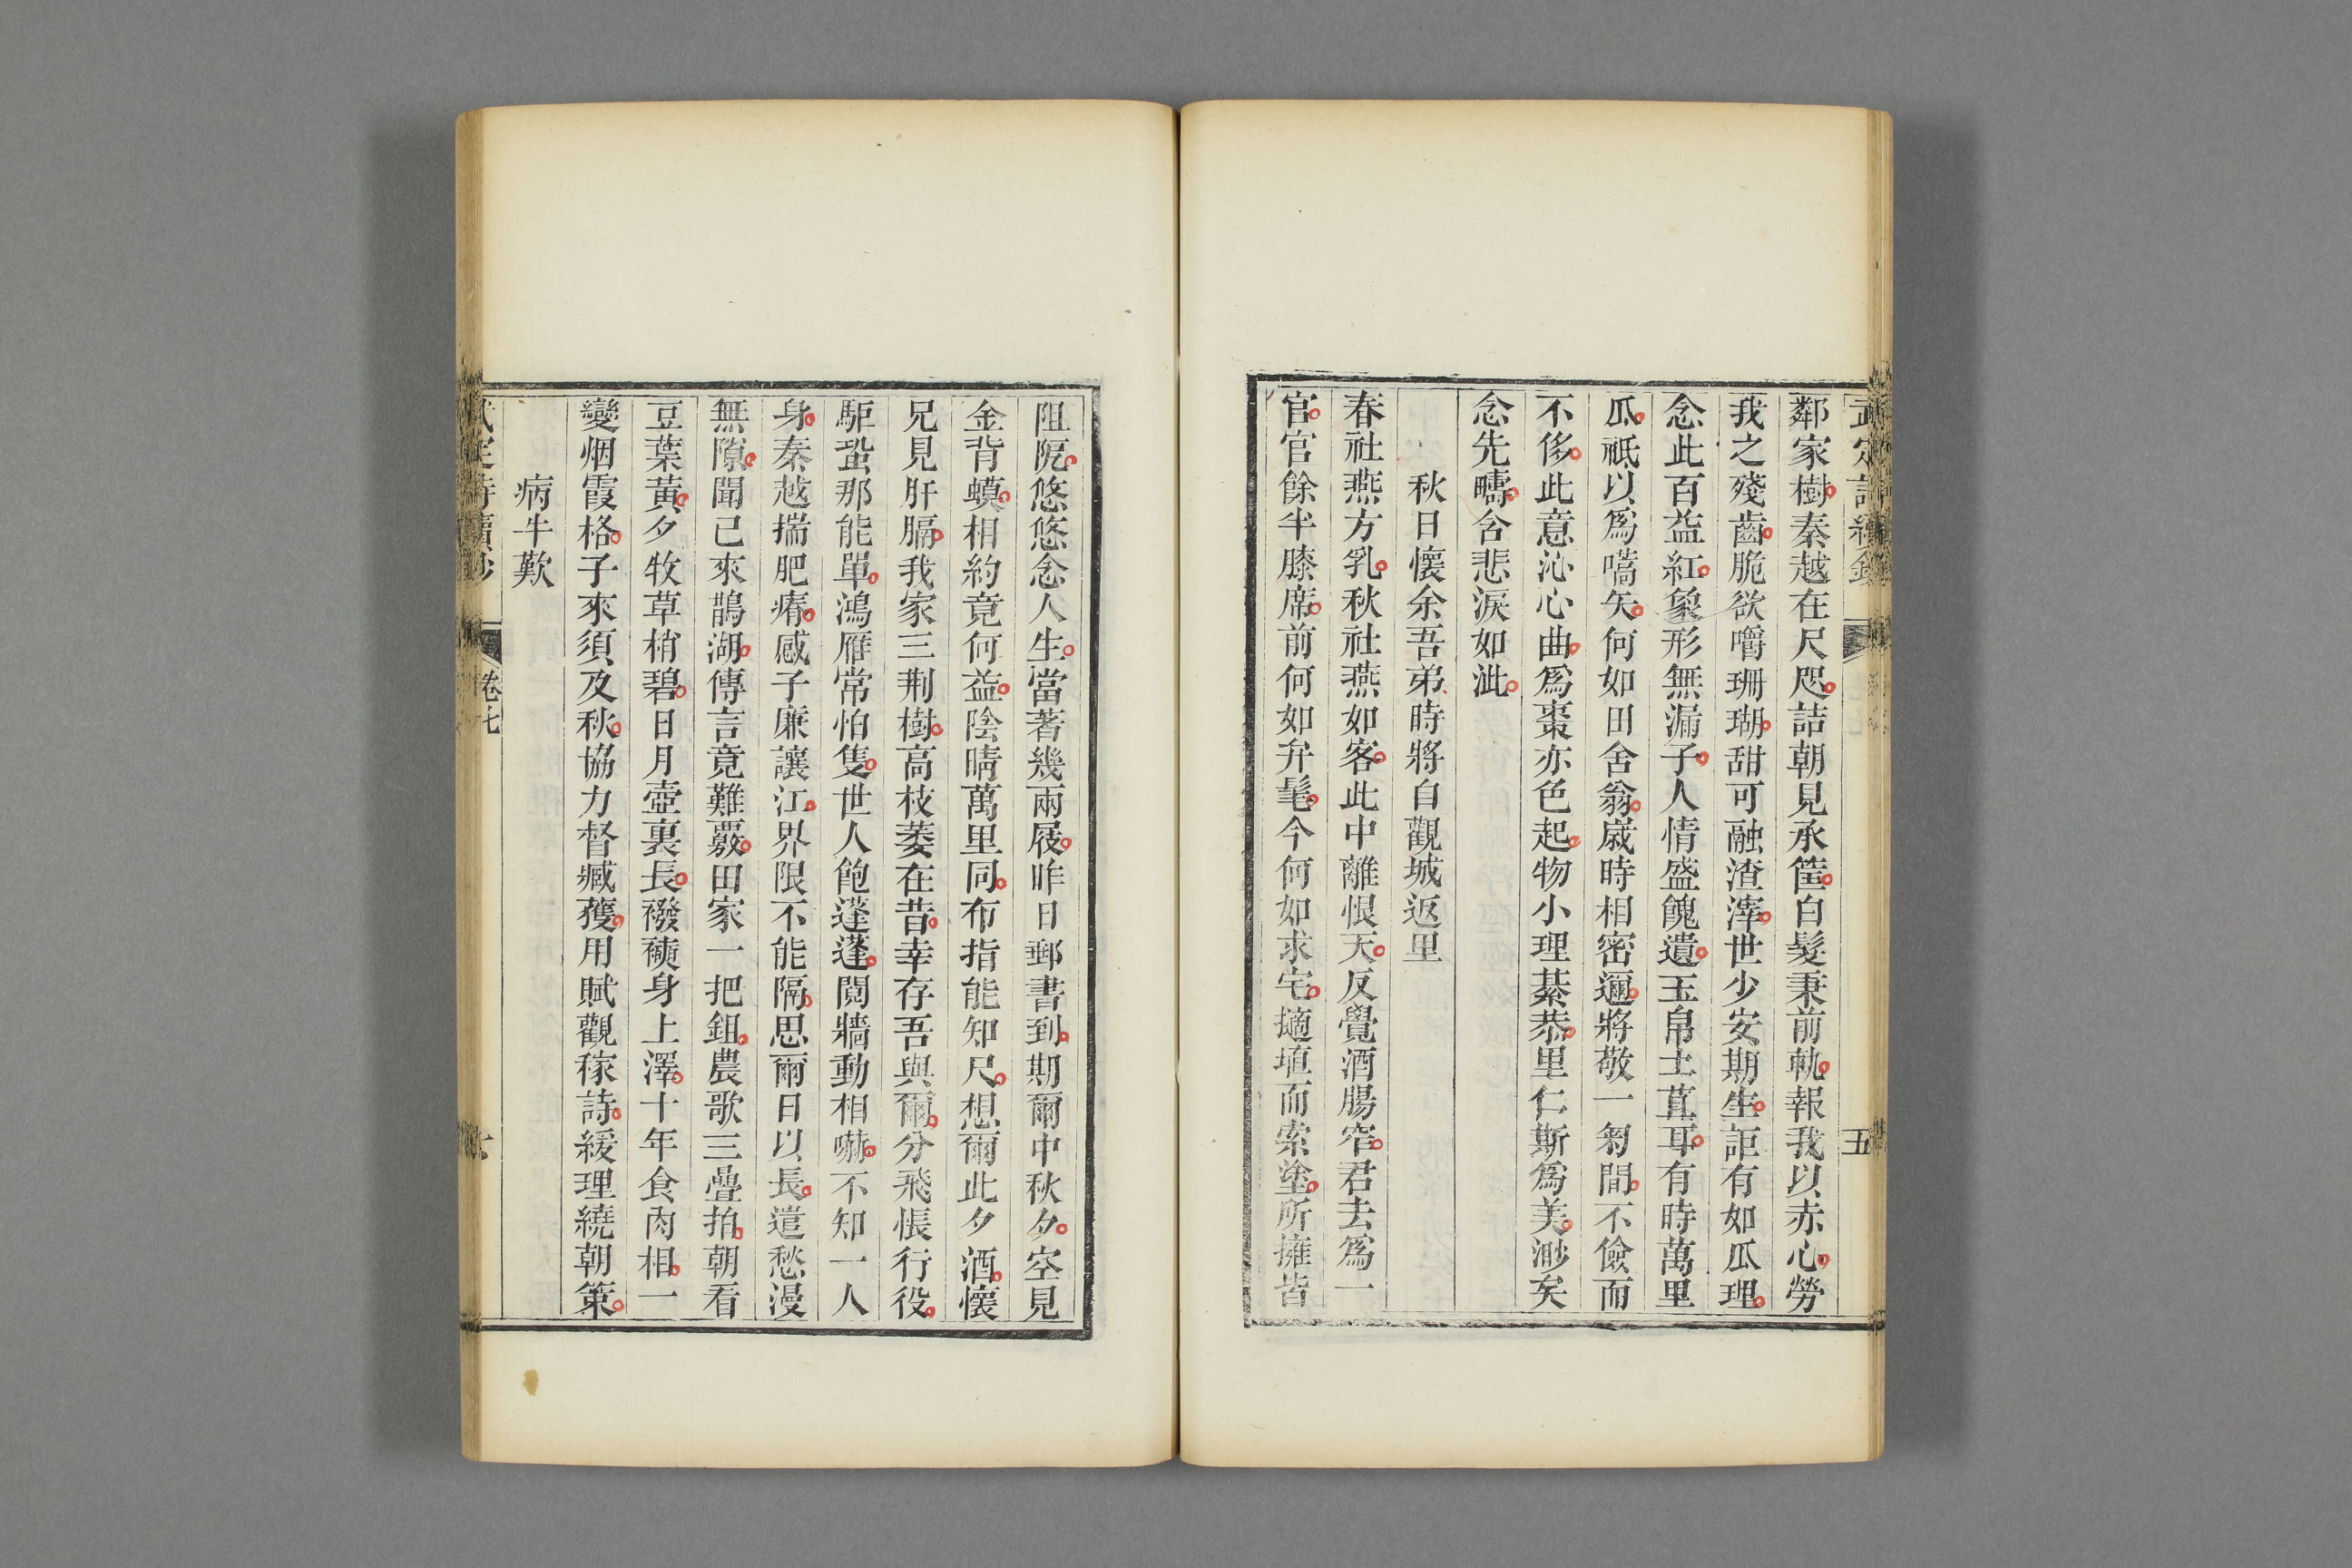 武定詩續鈔 五
鄰家樹秦越在尺咫詰朝見承筐白髮秉前軌報我以赤心勞
我之殘齒脆欲嚼珊瑚甜可融渣滓世少安期生詎有如瓜理
念此百益紅象形無漏子人情盛餽遺玉帛土苴耳有時萬里
瓜祗以爲嚆矢何如田舍翁歲時相密邇將敬一匊間不儉而
不侈此意沁心曲爲棗亦色起物小理綦恭里仁斯爲美渺矣
念先疇含悲淚如泚
秋日懷余吾弟時將自觀城返里
春社燕方乳秋社燕如客此中離恨天反覺酒腸窄君去爲一
官官餘半膝席前何如弁髦今何如求宅擿埴而索塗所擁皆
阻阨悠悠念人生當著幾兩屐昨日郵書到期爾中秋夕空見
金背蟆相約竟何益陰晴萬里同布指能知尺想爾此夕酒懷
兄見肝膈我家三荆樹高枝萎在昔幸存吾與爾分飛悵行役
駏蛩那能單鴻雁常怕隻世人飽蓬蓬鬩牆動相嚇不知一人
身秦越揣肥瘠感子廉讓江界限不能隔思爾日以長遣愁漫
無隙聞已來鵲湖傳言竟難覈田家一把鉏農歌三疊拍朝看
豆葉黃夕牧草梢碧日月壺裏長襏襫身上澤十年食肉相一
變烟霞格子來須及秋協力督臧獲用賦觀稼詩緩理繞朝策
病牛歎
武定詩續鈔 卷七